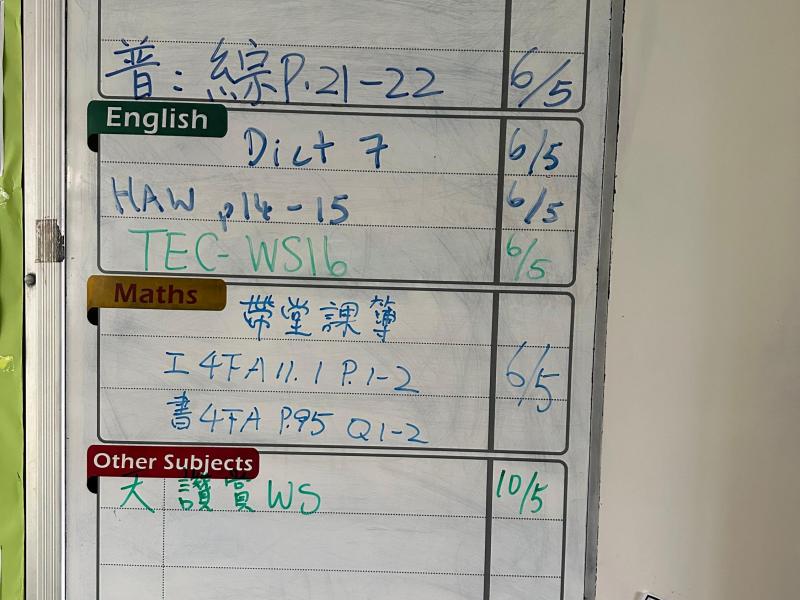 普：綜P.21-22 6/5
English
Dict 7 6/5
HAW p14-15 6/5
TEC-WS16 6/5
Maths
帶堂課簿
工4下A11.1 P.1-2 6/5
書4下A P.95 Q1-2
Other Subjects
天 讚賞WS 10/5